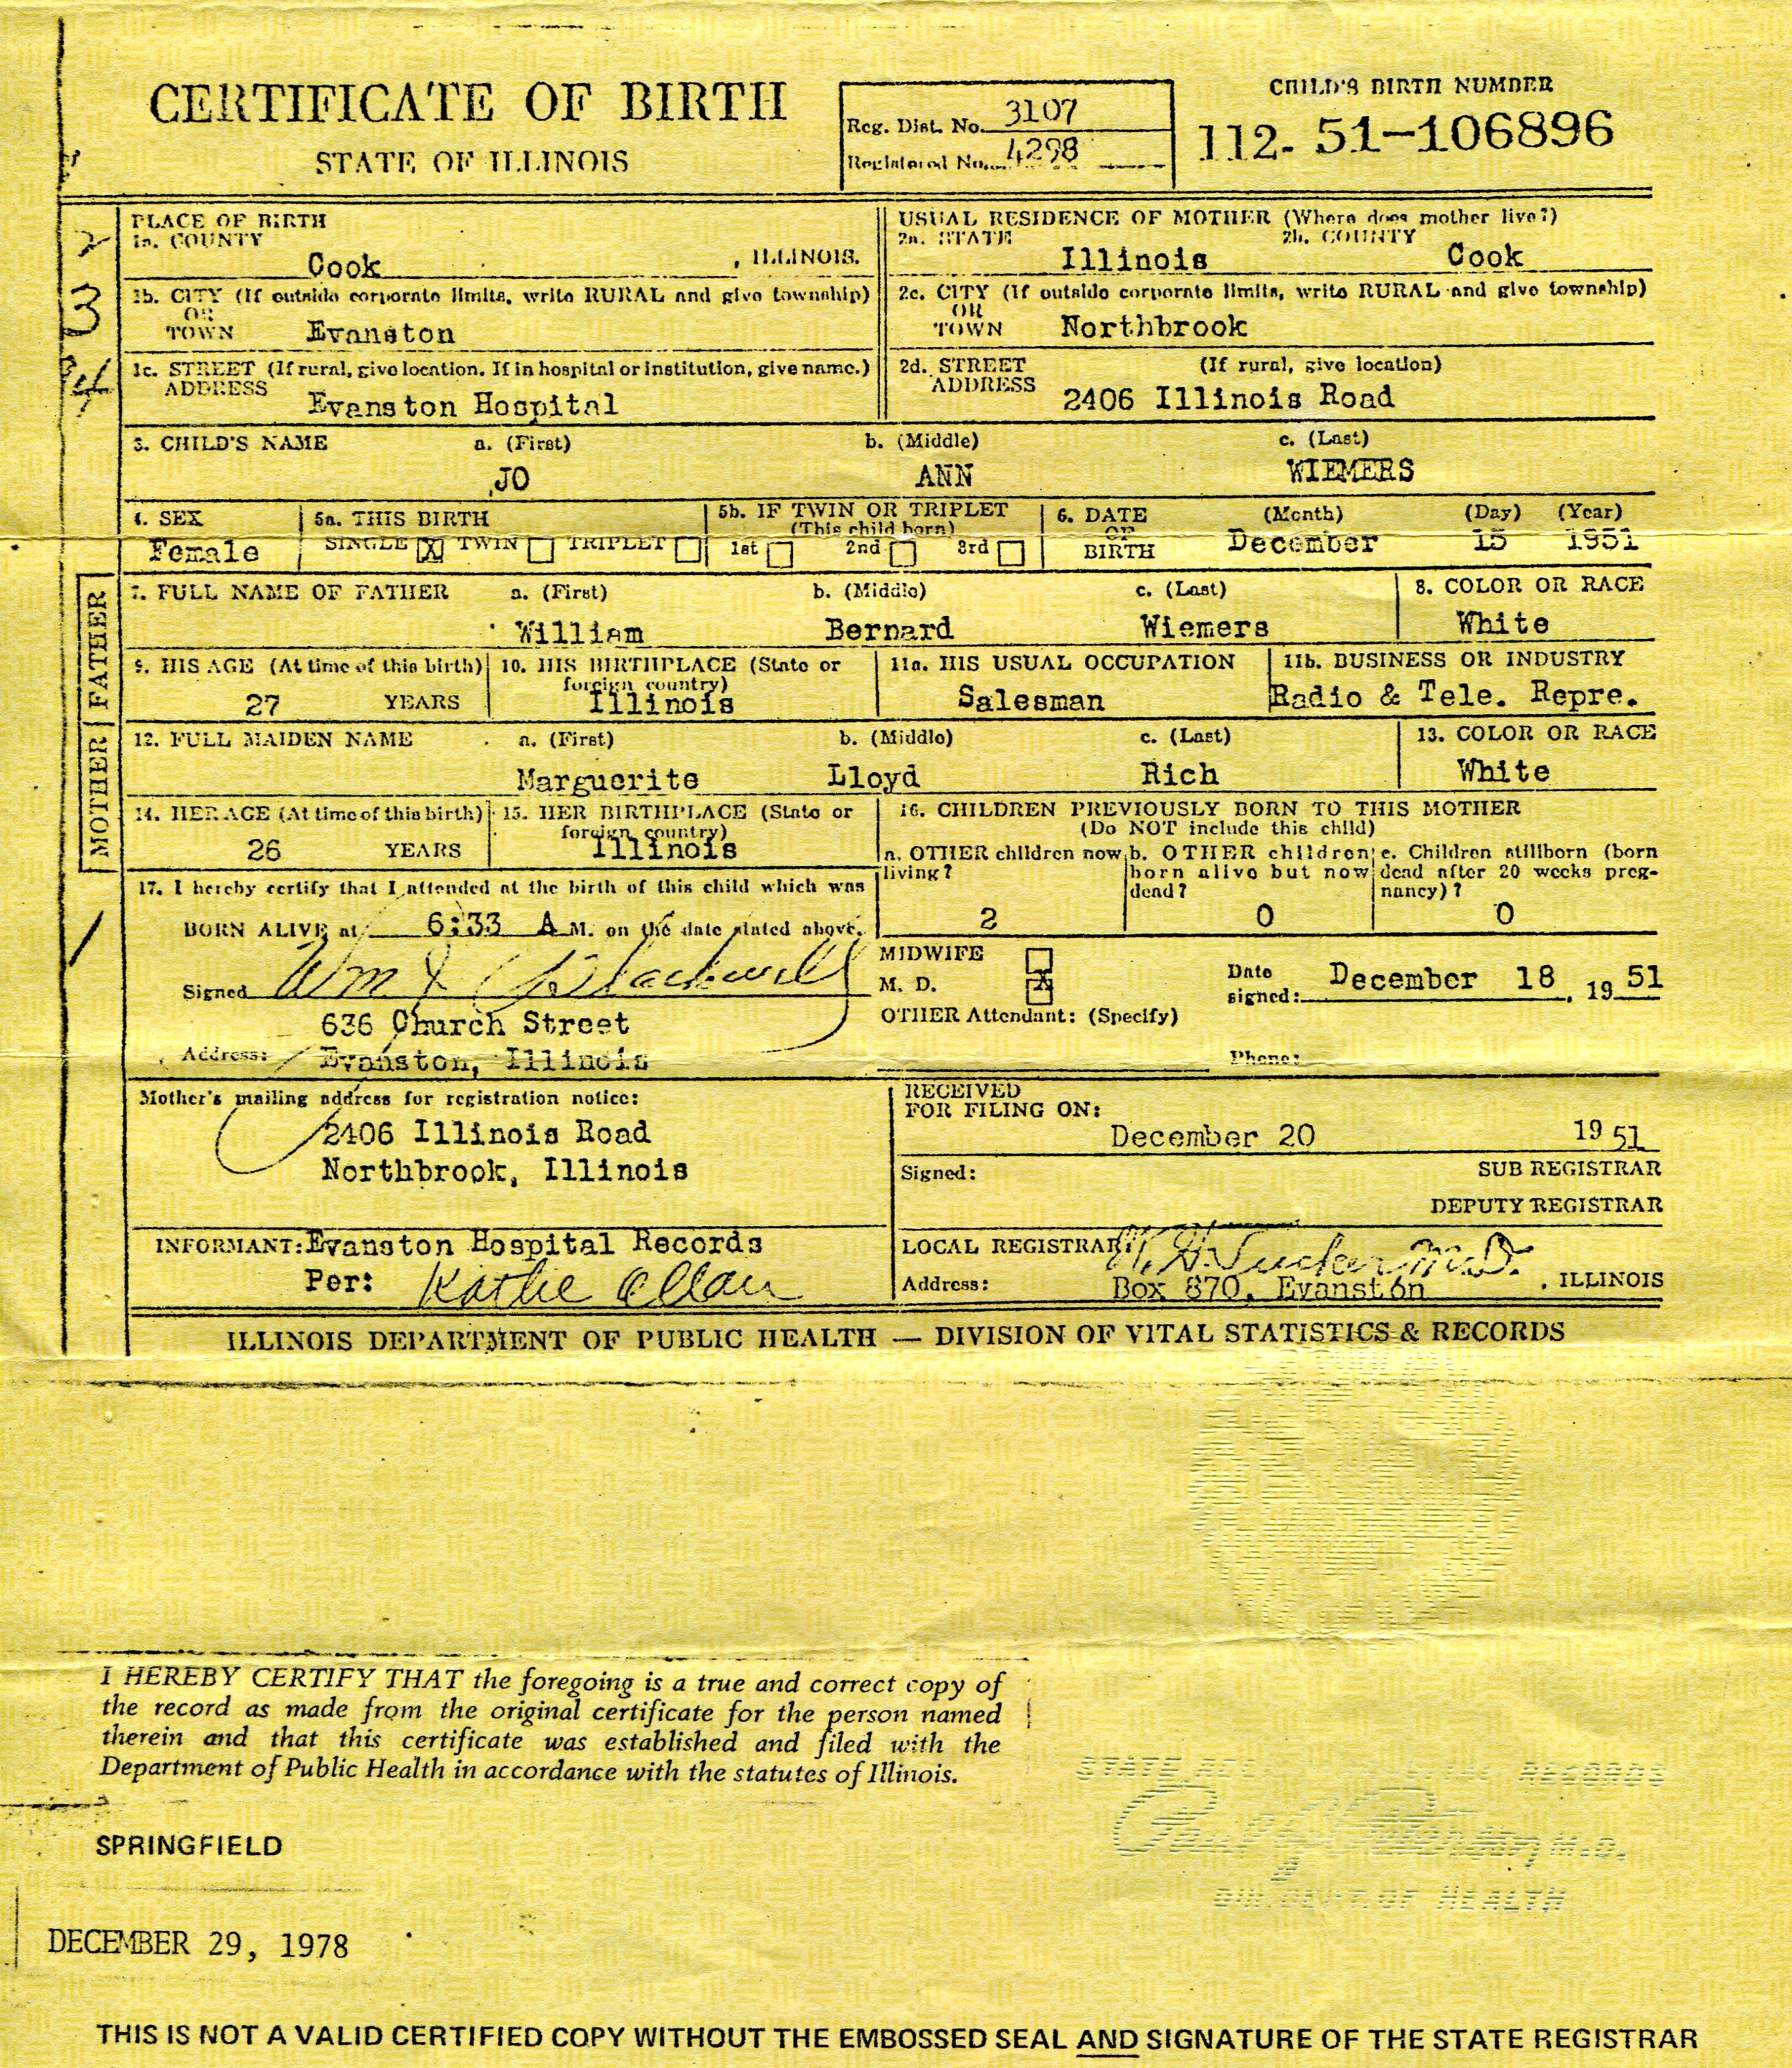 CERTIFICATE OF BIRTH
STATE OF ILLINOIS
Reg. Dist. No. 3107
Registered No. 4298
CHILD'S BIRTH NUMBER
112- 51-106896
2
3
4
PLACE OF BIRTH
1a. COUNTY
Cook , ILLINOIS.
USUAL RESIDENCE OF MOTHER (Where does mother live?)
2a. STATE 2b. COUNTY
Illinois Cook
1b. CITY (If outside corporate limits, write RURAL and give township)
OR
TOWN Evanston
2c. CITY (If outside corporate limits, write RURAL and give township)
OR
TOWN Northbrook
1c. STREET (If rural, give location. If in hospital or institution, give name.)
ADDRESS
Evanston Hospital
2d. STREET (If rural, give location)
ADDRESS
2406 Illinois Road
3. CHILD'S NAME a. (First) b. (Middle) c. (Last)
JO ANN WIEMERS
4. SEX
Female
5a. THIS BIRTH
SINGLE X TWIN TRIPLET
5b. IF TWIN OR TRIPLET
(This child born)
1st 2nd 3rd
6. DATE (Month) (Day) (Year)
OF
BIRTH December 15 1951
FATHER
7. FULL NAME OF FATHER a. (First) b. (Middle) c. (Last)
William Bernard Wiemers
8. COLOR OR RACE
White
9. HIS AGE (At time of this birth)
27 YEARS
10. HIS BIRTHPLACE (State or
foreign country)
Illinois
11a. HIS USUAL OCCUPATION
Salesman
11b. BUSINESS OR INDUSTRY
Radio & Tele. Repre.
MOTHER
12. FULL MAIDEN NAME a. (First) b. (Middle) c. (Last)
Marguerite Lloyd Rich
13. COLOR OR RACE
White
14. HER AGE (At time of this birth)
26 YEARS
15. HER BIRTHPLACE (State or
foreign country)
Illinois
16. CHILDREN PREVIOUSLY BORN TO THIS MOTHER
(Do NOT include this child)
a. OTHER children now
living?
2
b. OTHER children
born alive but now
dead?
0
c. Children stillborn (born
dead after 20 weeks preg-
nancy)?
0
17. I hereby certify that I attended at the birth of this child which was
BORN ALIVE at 6:33 A M. on the date stated above.
Signed Wm J Blackwell
636 Church Street
Address: Evanston, Illinois
MIDWIFE
M. D. X
OTHER Attendant: (Specify)
Date
signed: December 18, 19 51
Phone:
Mother's mailing address for registration notice:
2406 Illinois Road
Northbrook, Illinois
RECEIVED
FOR FILING ON:
December 20 19 51
Signed: SUB REGISTRAR
DEPUTY REGISTRAR
INFORMANT: Evanston Hospital Records
Per: Kathe Allan
LOCAL REGISTRAR: W. H. Tucker M.D.
Address: Box 870, Evanston , ILLINOIS
ILLINOIS DEPARTMENT OF PUBLIC HEALTH — DIVISION OF VITAL STATISTICS & RECORDS
I HEREBY CERTIFY THAT the foregoing is a true and correct copy of
the record as made from the original certificate for the person named
therein and that this certificate was established and filed with the
Department of Public Health in accordance with the statutes of Illinois.
SPRINGFIELD
STATE RECORDS
M.D.
DIR. DEPT. OF HEALTH
DECEMBER 29, 1978
THIS IS NOT A VALID CERTIFIED COPY WITHOUT THE EMBOSSED SEAL AND SIGNATURE OF THE STATE REGISTRAR